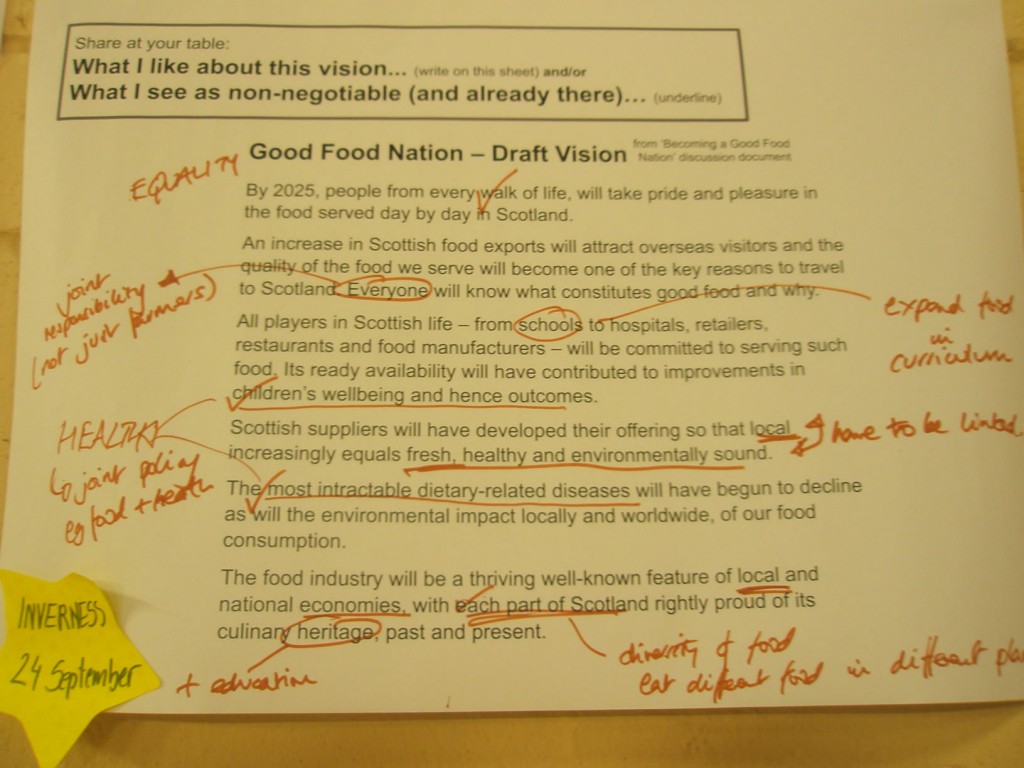 Share at your table:
What I like about this vision... (write on this sheet) and/or
What I see as non-negotiable (and already there)... (underline)
Good Food Nation – Draft Vision
from 'Becoming a Good Food
Nation' discussion document
EQUALITY
By 2025, people from every walk of life, will take pride and pleasure in
the food served day by day in Scotland.
An increase in Scottish food exports will attract overseas visitors and the
quality of the food we serve will become one of the key reasons to travel
to Scotland. Everyone will know what constitutes good food and why.
joint
responsibility
(not just farmers)
expand food
in
curriculum
All players in Scottish life – from schools to hospitals, retailers,
restaurants and food manufacturers – will be committed to serving such
food. Its ready availability will have contributed to improvements in
children's wellbeing and hence outcomes.
HEALTHY
joint policy
eg food + health
Scottish suppliers will have developed their offering so that local
increasingly equals fresh, healthy and environmentally sound.
have to be linked
The most intractable dietary-related diseases will have begun to decline
as will the environmental impact locally and worldwide, of our food
consumption.
The food industry will be a thriving well-known feature of local and
national economies, with each part of Scotland rightly proud of its
culinary heritage, past and present.
+ education
diversity of food
eat different food in different
INVERNESS
24 September